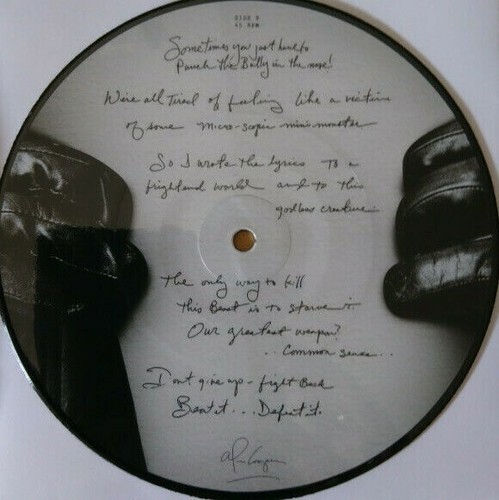 SIDE B
45 RPM
Sometimes you just have to
Punch the Bully in the nose!
We're all Tired of feeling like a victim
of some micro-scopic mini-monster
So I wrote the lyrics To a
frightend world and to this
godless creature
The only way to kill
this Beast is to starve it.
Our greatest weapon?
.. Common sense...
Don't give up - fight Back
Beat it... Defeat it.
Alice Cooper